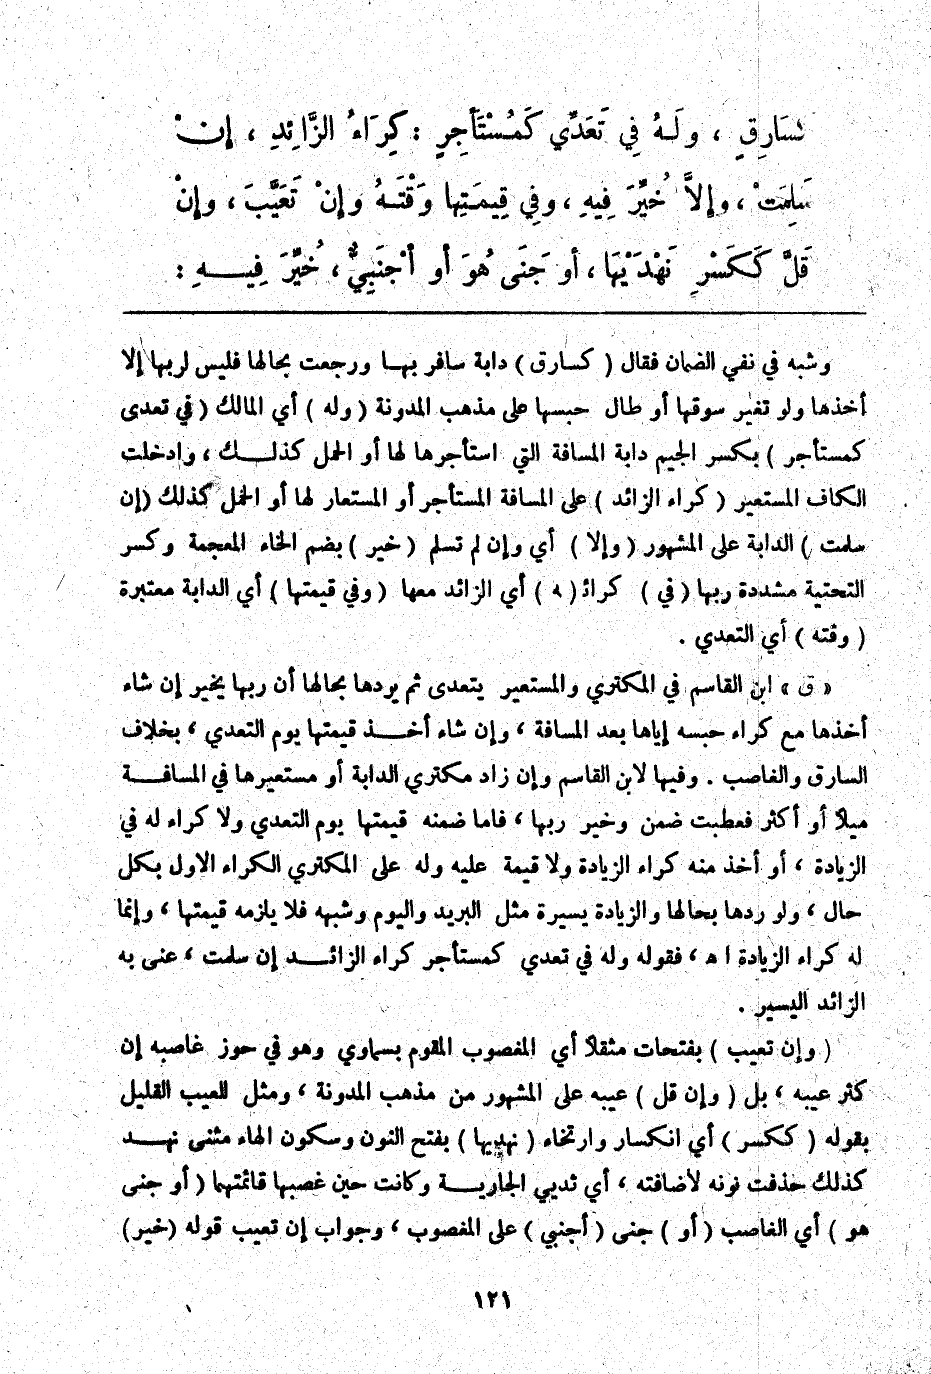 كسَارِقٍ ، ولَهُ فِي تَعَدِّي كَمُسْتَأْجِرٍ : كِرَاءُ الزَّائِدِ ، إِنْ
سَلِمَتْ ، وإِلاَّ خُيِّرَ فِيهِ ، وفِي قِيمَتِها وَقْتَهُ وإِنْ تَعَيَّبَ ، وإِنْ
قَلَّ كَكَسْرِ نَهْدَيْهَا ، أو جَنَى هُوَ أو أجْنَبِيٌّ ، خُيِّرَ فِيهِ :
وشبه في نفي الضمان فقال ( كسارق ) دابة سافر بها ورجعت بحالها فليس لربها إلا
أخذها ولو تغير سوقها أو طال حبسها على مذهب المدونة ( وله ) أي المالك ( في تعدى
كمستأجر ) بكسر الجيم دابة المسافة التي استأجرها لها أو الحمل كذلك ، وادخلت
الكاف المستعير ( كراء الزائد ) على المسافة المستأجر أو المستعار لها أو الحمل كذلك (إن
سلمت ) الدابة على المشهور ( وإلا ) أي وإن لم تسلم ( خير ) بضم الخاء المعجمة وكسر
التحتية مشددة ربها ( في ) كرائـ ( ـه ) أي الزائد معها ( وفي قيمتها ) أي الدابة معتبرة
( وقته ) أي التعدي .
« ق » ابن القاسم في المكتري والمستعير يتعدى ثم يردها بحالها أن ربها يخير إن شاء
أخذها مع كراء حبسه إياها بعد المسافة ، وإن شاء أخذ قيمتها يوم التعدي ، بخلاف
السارق والغاصب . وفيها لابن القاسم وإن زاد مكتري الدابة أو مستعيرها في المسافة
ميلاً أو أكثر فعطبت ضمن وخير ربها ، فاما ضمنه قيمتها يوم التعدي ولا كراء له في
الزيادة ، أو أخذ منه كراء الزيادة ولا قيمة عليه وله على المكتري الكراء الاول بكل
حال ، ولو ردها بحالها والزيادة يسيرة مثل البريد واليوم وشبهه فلا يلزمه قيمتها ، وإنما
له كراء الزيادة ا ه ، فقوله وله في تعدي كمستأجر كراء الزائد إن سلمت ، عنى به
الزائد اليسير .
( وإن تعيب ) بفتحات مثقلاً أي المغصوب المقوم بسماوي وهو في حوز غاصبه إن
كثر عيبه ، بل ( وإن قل ) عيبه على المشهور من مذهب المدونة ، ومثل للعيب القليل
بقوله ( ككسر ) أي انكسار وارتخاء ( نهديها ) بفتح النون وسكون الهاء مثنى نهد
كذلك حذفت نونه لأضافته ، أي ثديي الجارية وكانت حين غصبها قائمتهما ( أو جنى
هو ) أي الغاصب ( أو ) جنى ( أجنبي ) على المغصوب ، وجواب إن تعيب قوله (خير)
١٢١